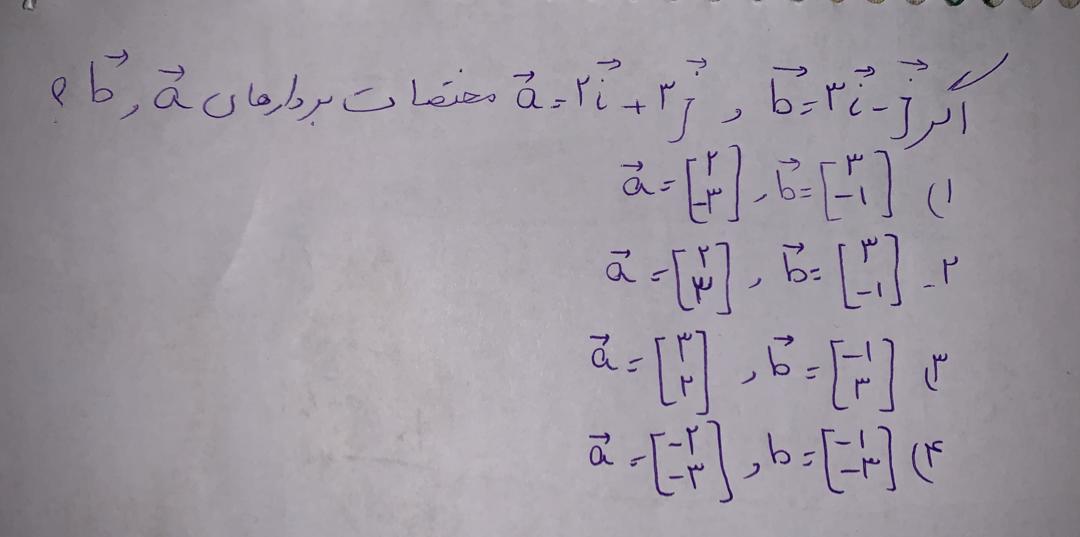 اگر b⃗ = ۳i⃗ - j⃗ و a⃗ = ۲i⃗ + ۳j⃗ مختصات بردارهای a⃗ و b⃗ ؟
۱) a⃗ = [۲ -۳] و b⃗ = [۳ -۱]
۲- a⃗ = [۲ ۳] و b⃗ = [۳ -۱]
۳) a⃗ = [۳ ۲] و b⃗ = [-۱ ۳]
۴) a⃗ = [-۲ -۳] و b = [-۱ -۳]